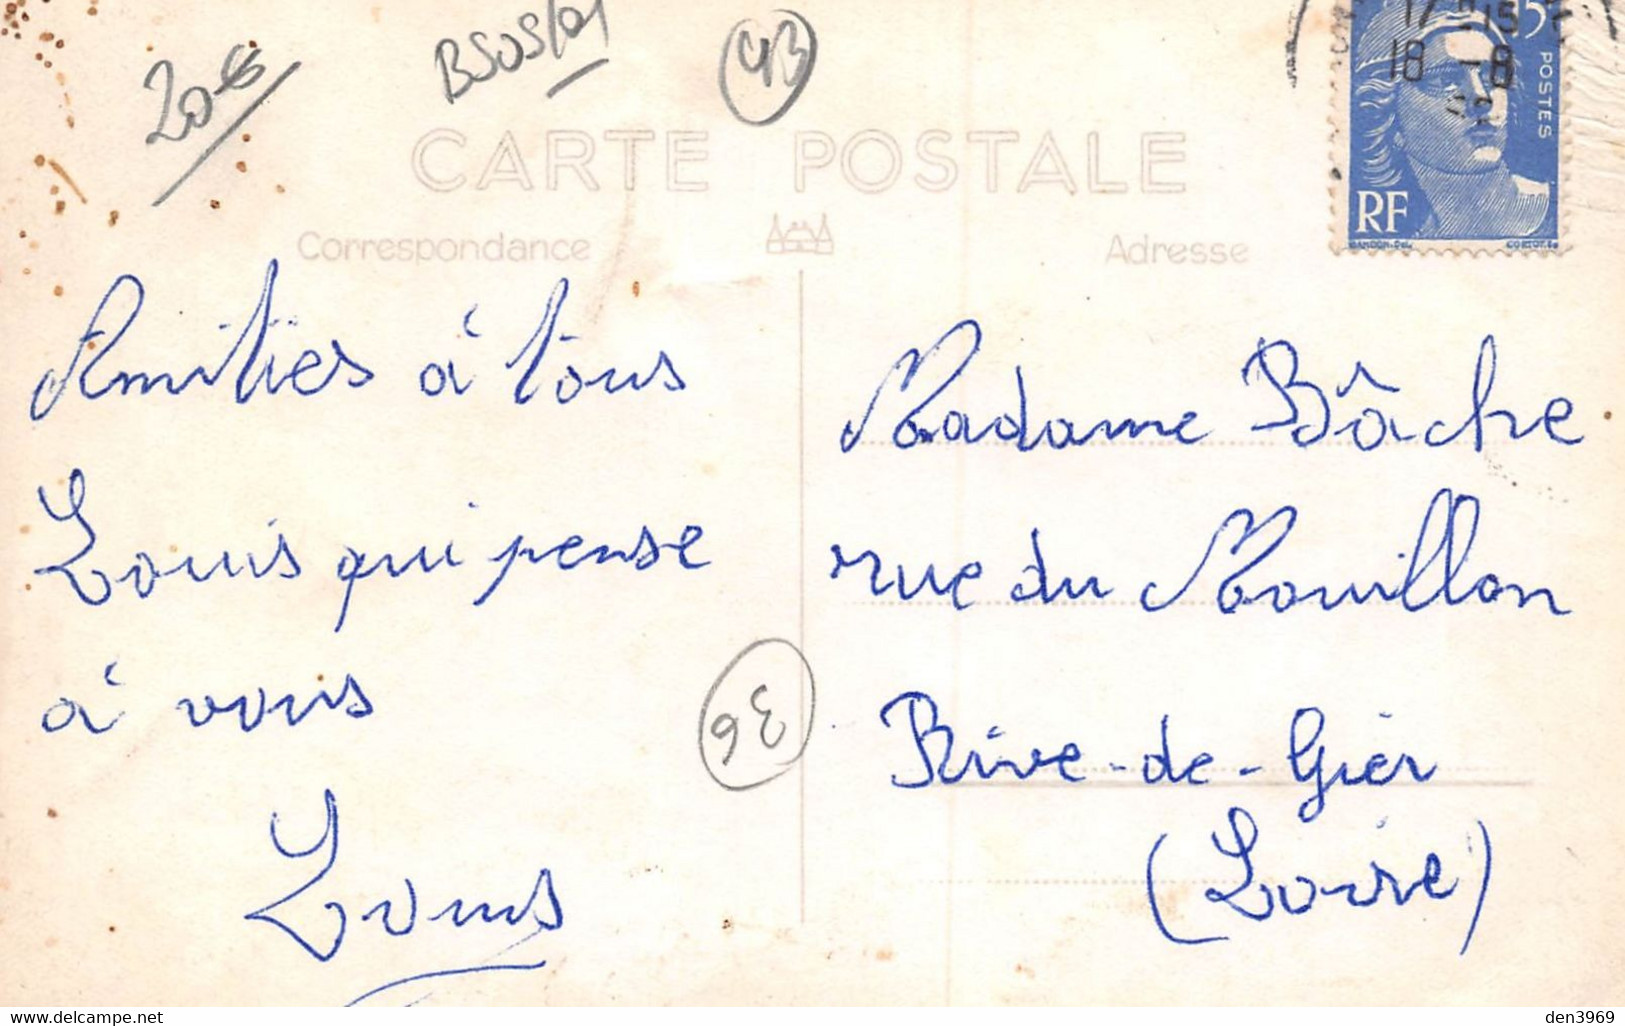 20€
BS05/01
43
CARTE POSTALE
Correspondance
Adresse
17 15
18 -8
15F
POSTES
RF
GANDON-Del.
CORTOT.Sc
Amitiés à tous
Louis qui pense
à vous
Louis
36
Madame Bâche
rue du Mouillon
Rive-de-Gier
(Loire)
www.delcampe.net
den3969